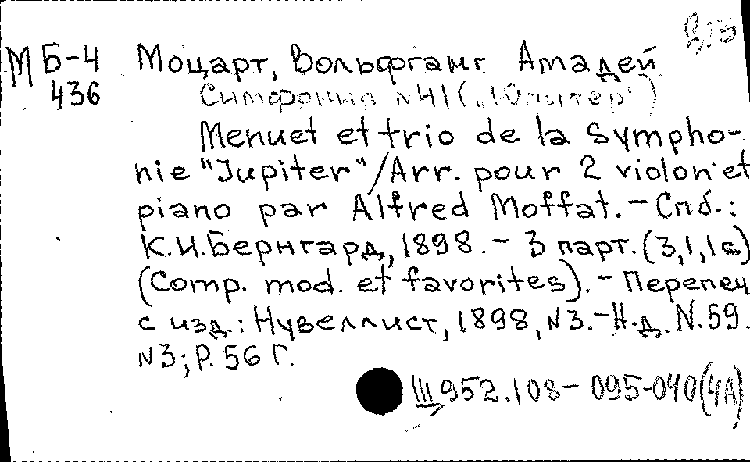 М Б-4 Моцарт, Вольфганг Амадей
436 Симфония N41 („Юпитер")
Menuet et trio de la Sympho-
nie "Jupiter"/Arr. pour 2 violon et
piano par Alfred Moffat. – Спб.:
К.И.Бернгард, 1898. – 3 парт. (3,1,1с)
(Comp. mod. et favorites). – Перепеч
с изд.: Нувеллист, 1898, N3. – Н.д. N.59.
N3; P. 56 Г.
III 952.108 – 095-040(4А)